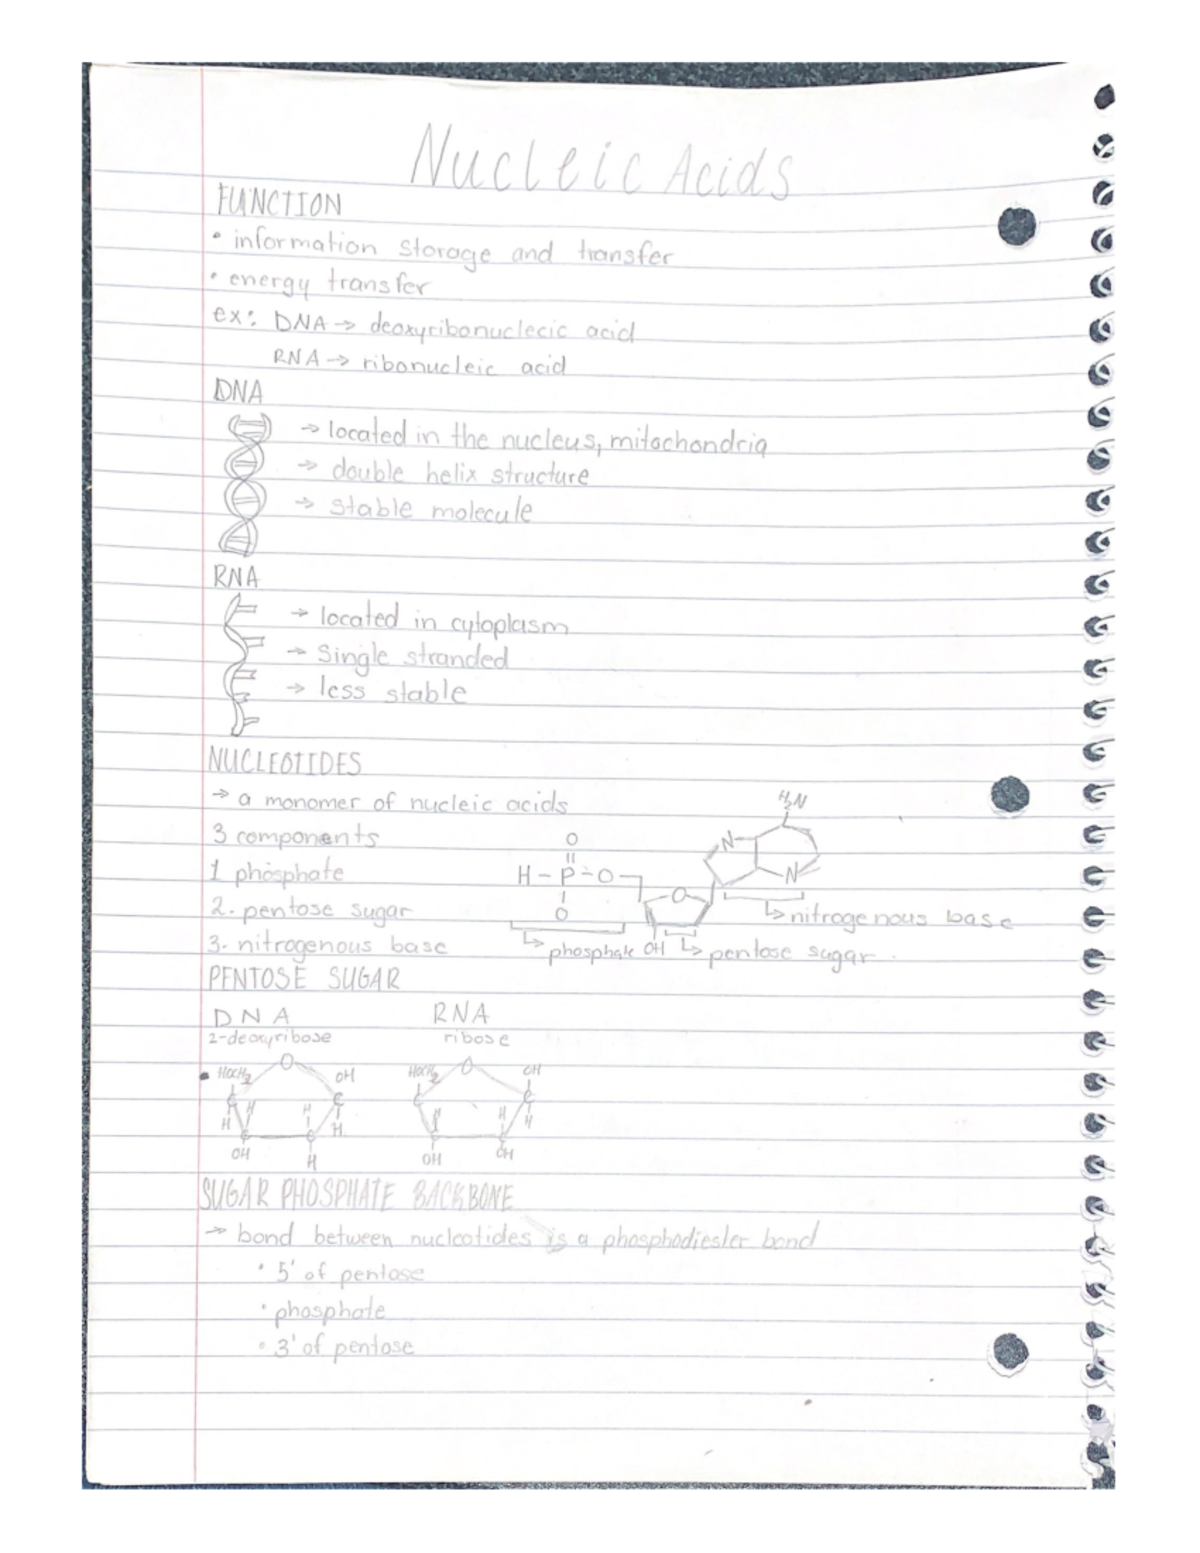 Nucleic Acids
FUNCTION
• information storage and transfer
• energy transfer
ex: DNA → deoxyribonuclecic acid
RNA → ribonucleic acid
DNA
→ located in the nucleus, mitochondria
→ double helix structure
→ stable molecule
RNA
→ located in cytoplasm
→ Single stranded
→ less stable
NUCLEOTIDES
→ a monomer of nucleic acids
H₂N
3 components
O
N
1 phosphate
H - P - O
O
N
2. pentose sugar
O
↳ nitrogenous base
3. nitrogenous base
↳ phosphate
OH
↳ pentose sugar
PENTOSE SUGAR
DNA
RNA
2-deoxyribose
ribose
HOCH₂
O
OH
HOCH₂
O
OH
C
C
C
C
H
H
H
H
H
H
H
C
C
C
C
OH
H
OH
OH
SUGAR PHOSPHATE BACKBONE
→ bond between nucleotides is a phosphodiester bond
• 5' of pentose
• phosphate
• 3' of pentose